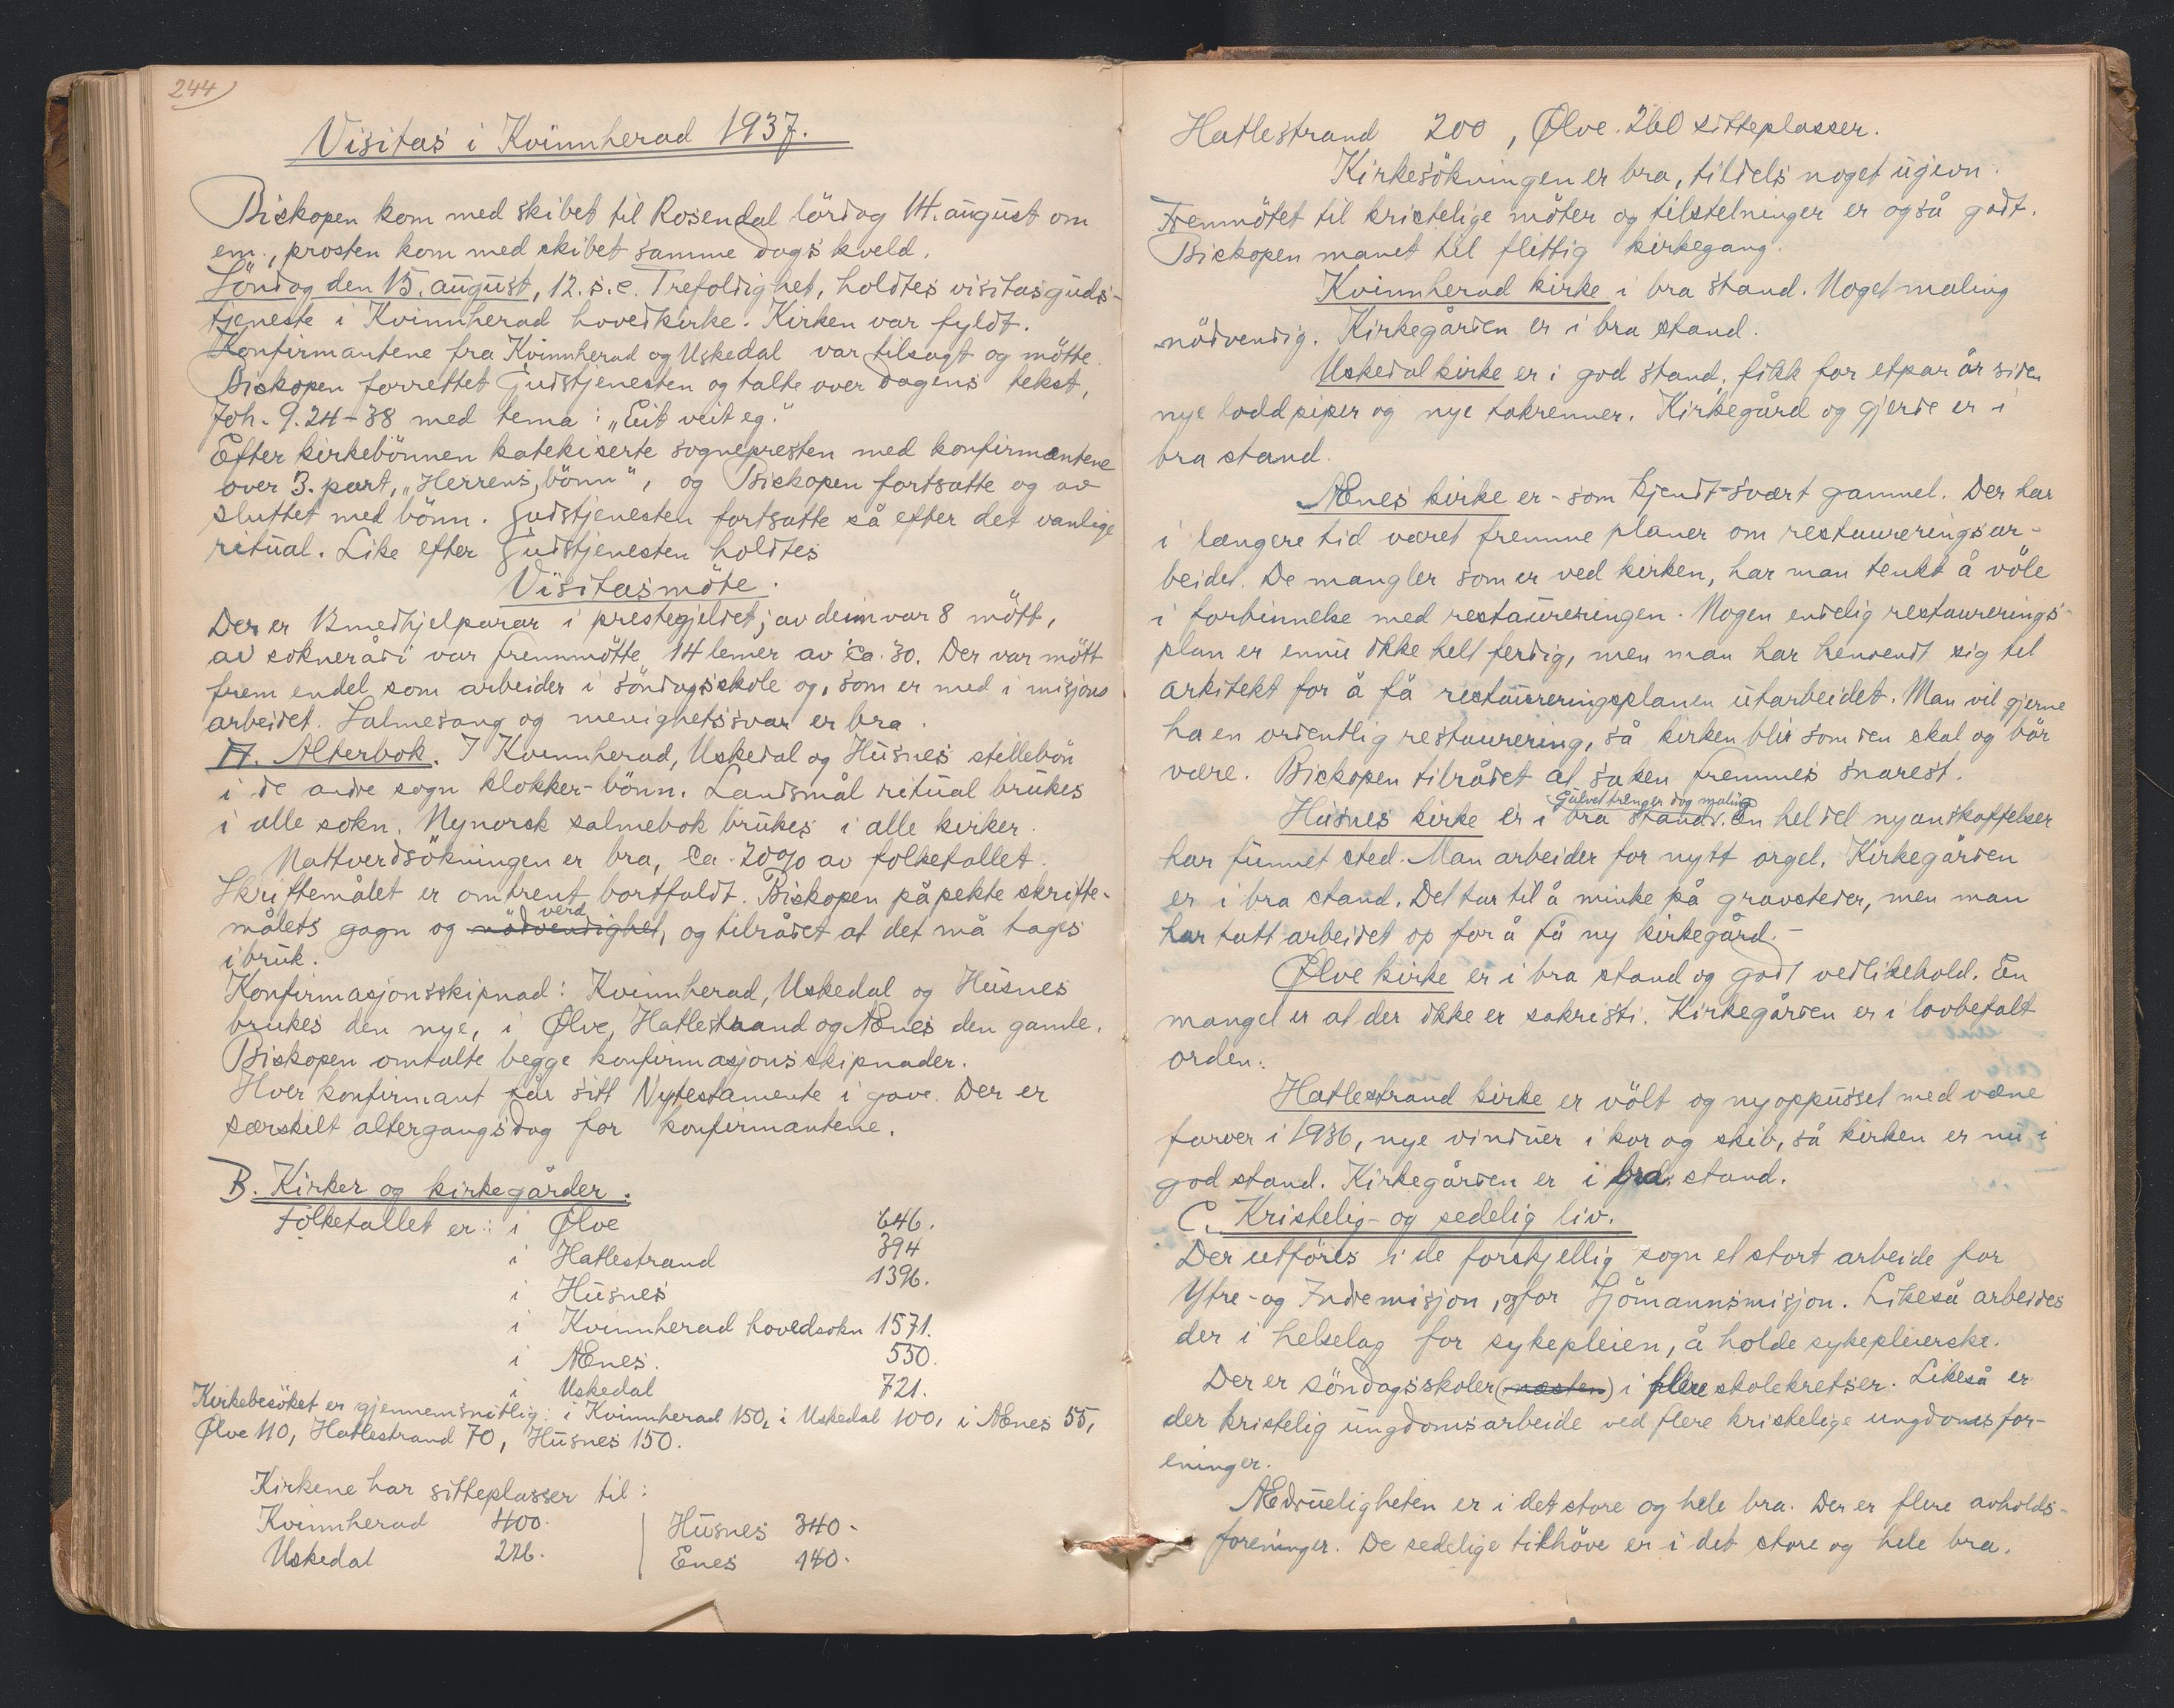 244
Visitas i Kvinnherad 1937.
Biskopen kom med skibet til Rosendal lördag 14. august om
em., prosten kom med skibet samme dags kveld.
Söndag den 15. august, 12. s. e. Trefoldighet, holdtes visitasguds-
tjeneste i Kvinnherad hovedkirke. Kirken var fyldt.
Konfirmantene fra Kvinnherad og Uskedal var tilsagt og mötte.
Biskopen forrettet Gudstjenesten og talte over dagens tekst,
Joh. 9. 24-38 med tema: „Eit veit eg."
Efter kirkebönnen katekiserte sognepresten med konfirmantene
over 3. part, „Herrens bönn", og Biskopen fortsatte og av
sluttet med bönn. Gudstjenesten fortsatte så efter det vanlige
ritual. Like efter Gudstjenesten holdtes
Visitasmöte.
Der er 12 medhjelparar i prestegjeldet; av deim var 8 mött,
av sokneråd i var fremmötte 14 lemer av ca. 30. Der var mött
frem endel som arbeider i söndagsskole og, som er med i misjons
arbeidet. Salmesang og menighetssvar er bra.
A. Alterbok. I Kvinnherad, Uskedal og Húsnes stillebön
i de andre sogn klokker-bönn. Landsmål ritual brukes
i alle sokn. Nynorsk salmebok brukes i alle kirker.
Nattverdsökningen er bra, ca. 20% av folketallet.
Skriftemålet er omtrent bortfaldt. Biskopen påpekte skrifte-
målets gagn og nödvendighet, verd og tilrådet at det må tages
i bruk.
Konfirmasjonsskipnad: Kvinnherad, Uskedal og Húsnes
brukes den nye, i Ølve, Hatlestrand og Ænes den gamle.
Biskopen omtalte begge konfirmasjonsskipnader.
Hver konfirmant får sitt Nytestamente i gave. Der er
særskilt altergangsdag for konfirmantene.
B. Kirker og kirkegårder.
Folketallet er: i Ølve 646.
i Hatlestrand 394
i Húsnes 1396.
i Kvinnherad hovedsokn 1571.
i Ænes. 550.
i Uskedal 721.
Kirkebesöket er gjennemsnitlig: i Kvinnherad 150, i Uskedal 100, i Ænes 55,
Ølve 110, Hatlestrand 70, Húsnes 150.
Kirkene har sitteplasser til:
Kvinnherad 400. Húsnes 340.
Uskedal 226. Enes 140.
Hatlestrand 200, Ølve 260 sitteplasser.
Kirkesökningen er bra, tildels noget ujevn.
Fremmötet til kristelige möter og tilstelninger er også godt.
Biskopen manet til flittig kirkegang.
Kvinnherad kirke i bra stand. Noget maling
nödvendig. Kirkegården er i bra stand.
Uskedal kirke er i god stand, fikk for etpar år siden
nye loddpiper og nye takrenner. Kirkegård og gjerde er i
bra stand.
Ænes kirke er - som kjendt - svært gammel. Der har
i længere tid været fremme planer om restaureringsar-
beidet. De mangler som er ved kirken, har man tenkt å völe
i forbinnelse med restaureringen. Nogen endelig restaurerings-
plan er ennu ikke helt ferdig, men man har henvendt sig til
arkitekt for å få restaureringsplanen utarbeidet. Man vil gjerne
ha en ordentlig restaurering, så kirken blir som den skal og bör
være. Biskopen tilrådet at saken fremmes snarest.
Gulvet trenger dog maling
Húsnes kirke er i bra stand. En hel del nyanskaffelser
har funnet sted. Man arbeider for nytt orgel. Kirkegården
er i bra stand. Det tar til å minke på gravsteder, men man
har tatt arbeidet op for å få ny kirkegård. -
Ølve kirke er i bra stand og godt vedlikehold. En
mangel er at der ikke er sakristi. Kirkegården er i lovbefalt
orden.
Hatlestrand kirke er völt og nyoppusset med væne
farver i 1936, nye vinduer i kor og skib, så kirken er nu i
god stand. Kirkegården er i bra stand.
C. Kristelig- og sedelig liv.
Der utföres i de forskjellig sogn et stort arbeide for
Ytre- og Indremisjon, og for Sjömannsmisjon. Likeså arbeides
der i helselag for sykepleien, å holde sykepleierske.
Der er söndagsskoler (næsten) i flere skolekretser. Likeså er
der kristelig ungdomsarbeide ved flere kristelige ungdomsfor-
eninger.
Ædrueligheten er i det store og hele bra. Der er flere avholds-
foreninger. De sedelige tilhöve er i det store og hele bra.